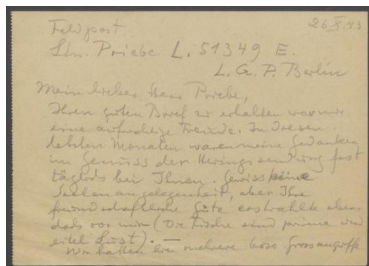 Feldpost 26.X.43
Ltn. Priebe L. 51349 E.
L. G. P. Berlin
Mein lieber Herr Priebe,
Ihren guten Brief zu erhalten war mir
eine aufrichtige Freude. In diesen
letzten Monaten waren meine Gedanken
im Genuss der Heringssendung fast
täglich bei Ihnen. Gewiss keine
Seelenangelegenheit, aber Ihre
freundschaftliche Güte erstrahlte eben
das vor mir (Die Fische sind prima und
eitel Lust). —
Wir hatten hier mehrere böse Grossangriffe